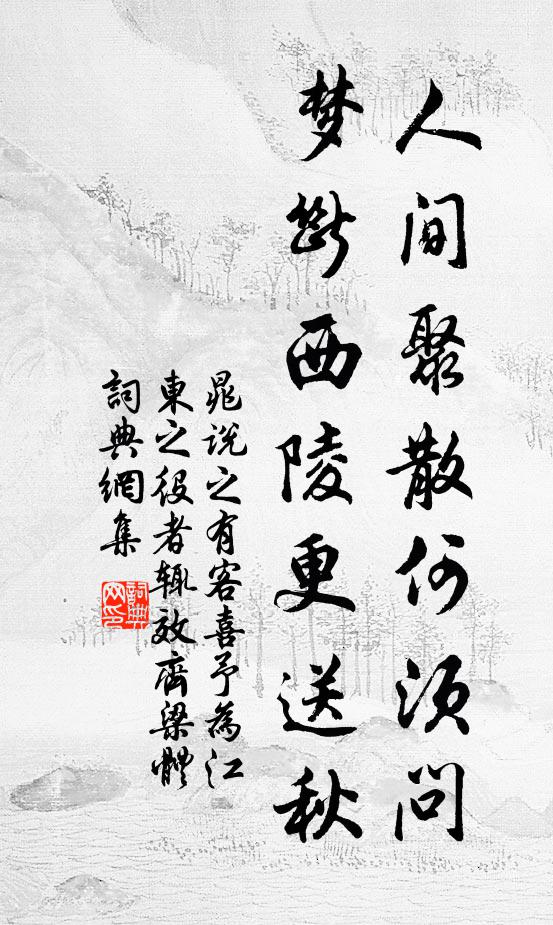 人间聚散何须问
梦断西陵更送秋
晁说之有客喜予为江
東之役者辄效齊梁體
詞典網集
詞典网印